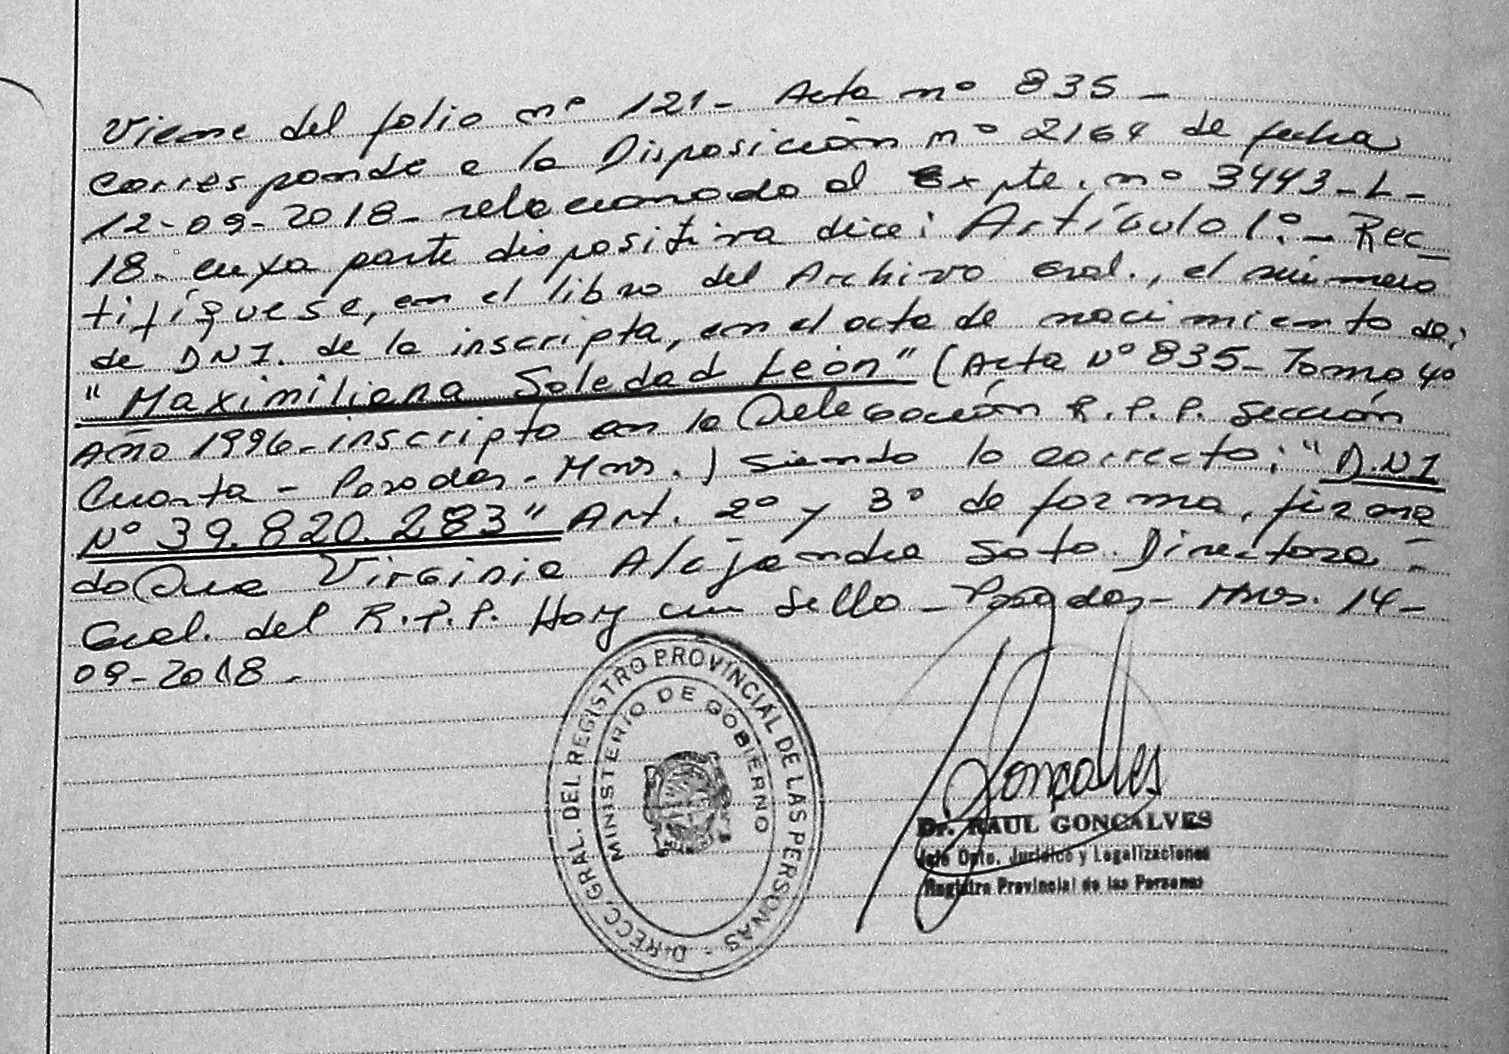 Viene del folio nº 121- Acta nº 835-
Corresponde a la Disposición nº 2164 de fecha
12-09-2018- relacionado al Expte. nº 3443-L-
18- cuya parte dispositiva dice: Artículo 1º.- Rec-
tifíquese, en el libro del Archivo Gral., el número
de DNI. de la inscripta, en el acta de nacimiento de:
"Maximiliana Soledad León" (Acta Nº 835- Tomo 4º
Año 1996- inscripto en la Delegación R.P.P. Sección
Cuarta - Posadas - Mnes.) siendo lo correcto: "D.N.I
Nº 39.820.283" Art. 2º y 3º de forma, firma
do Dra Virginia Alejandra Soto. Directora -
Gral. del R.P.P. Hay un Sello - Posadas - Mnes. 14-
09-2018-
DIRECC. GRAL. DEL REGISTRO PROVINCIAL DE LAS PERSONAS -
MINISTERIO DE GOBIERNO
Goncalves
Dr. RAUL GONCALVES
Jefe Dpto. Jurídico y Legalizaciones
Registro Provincial de las Personas